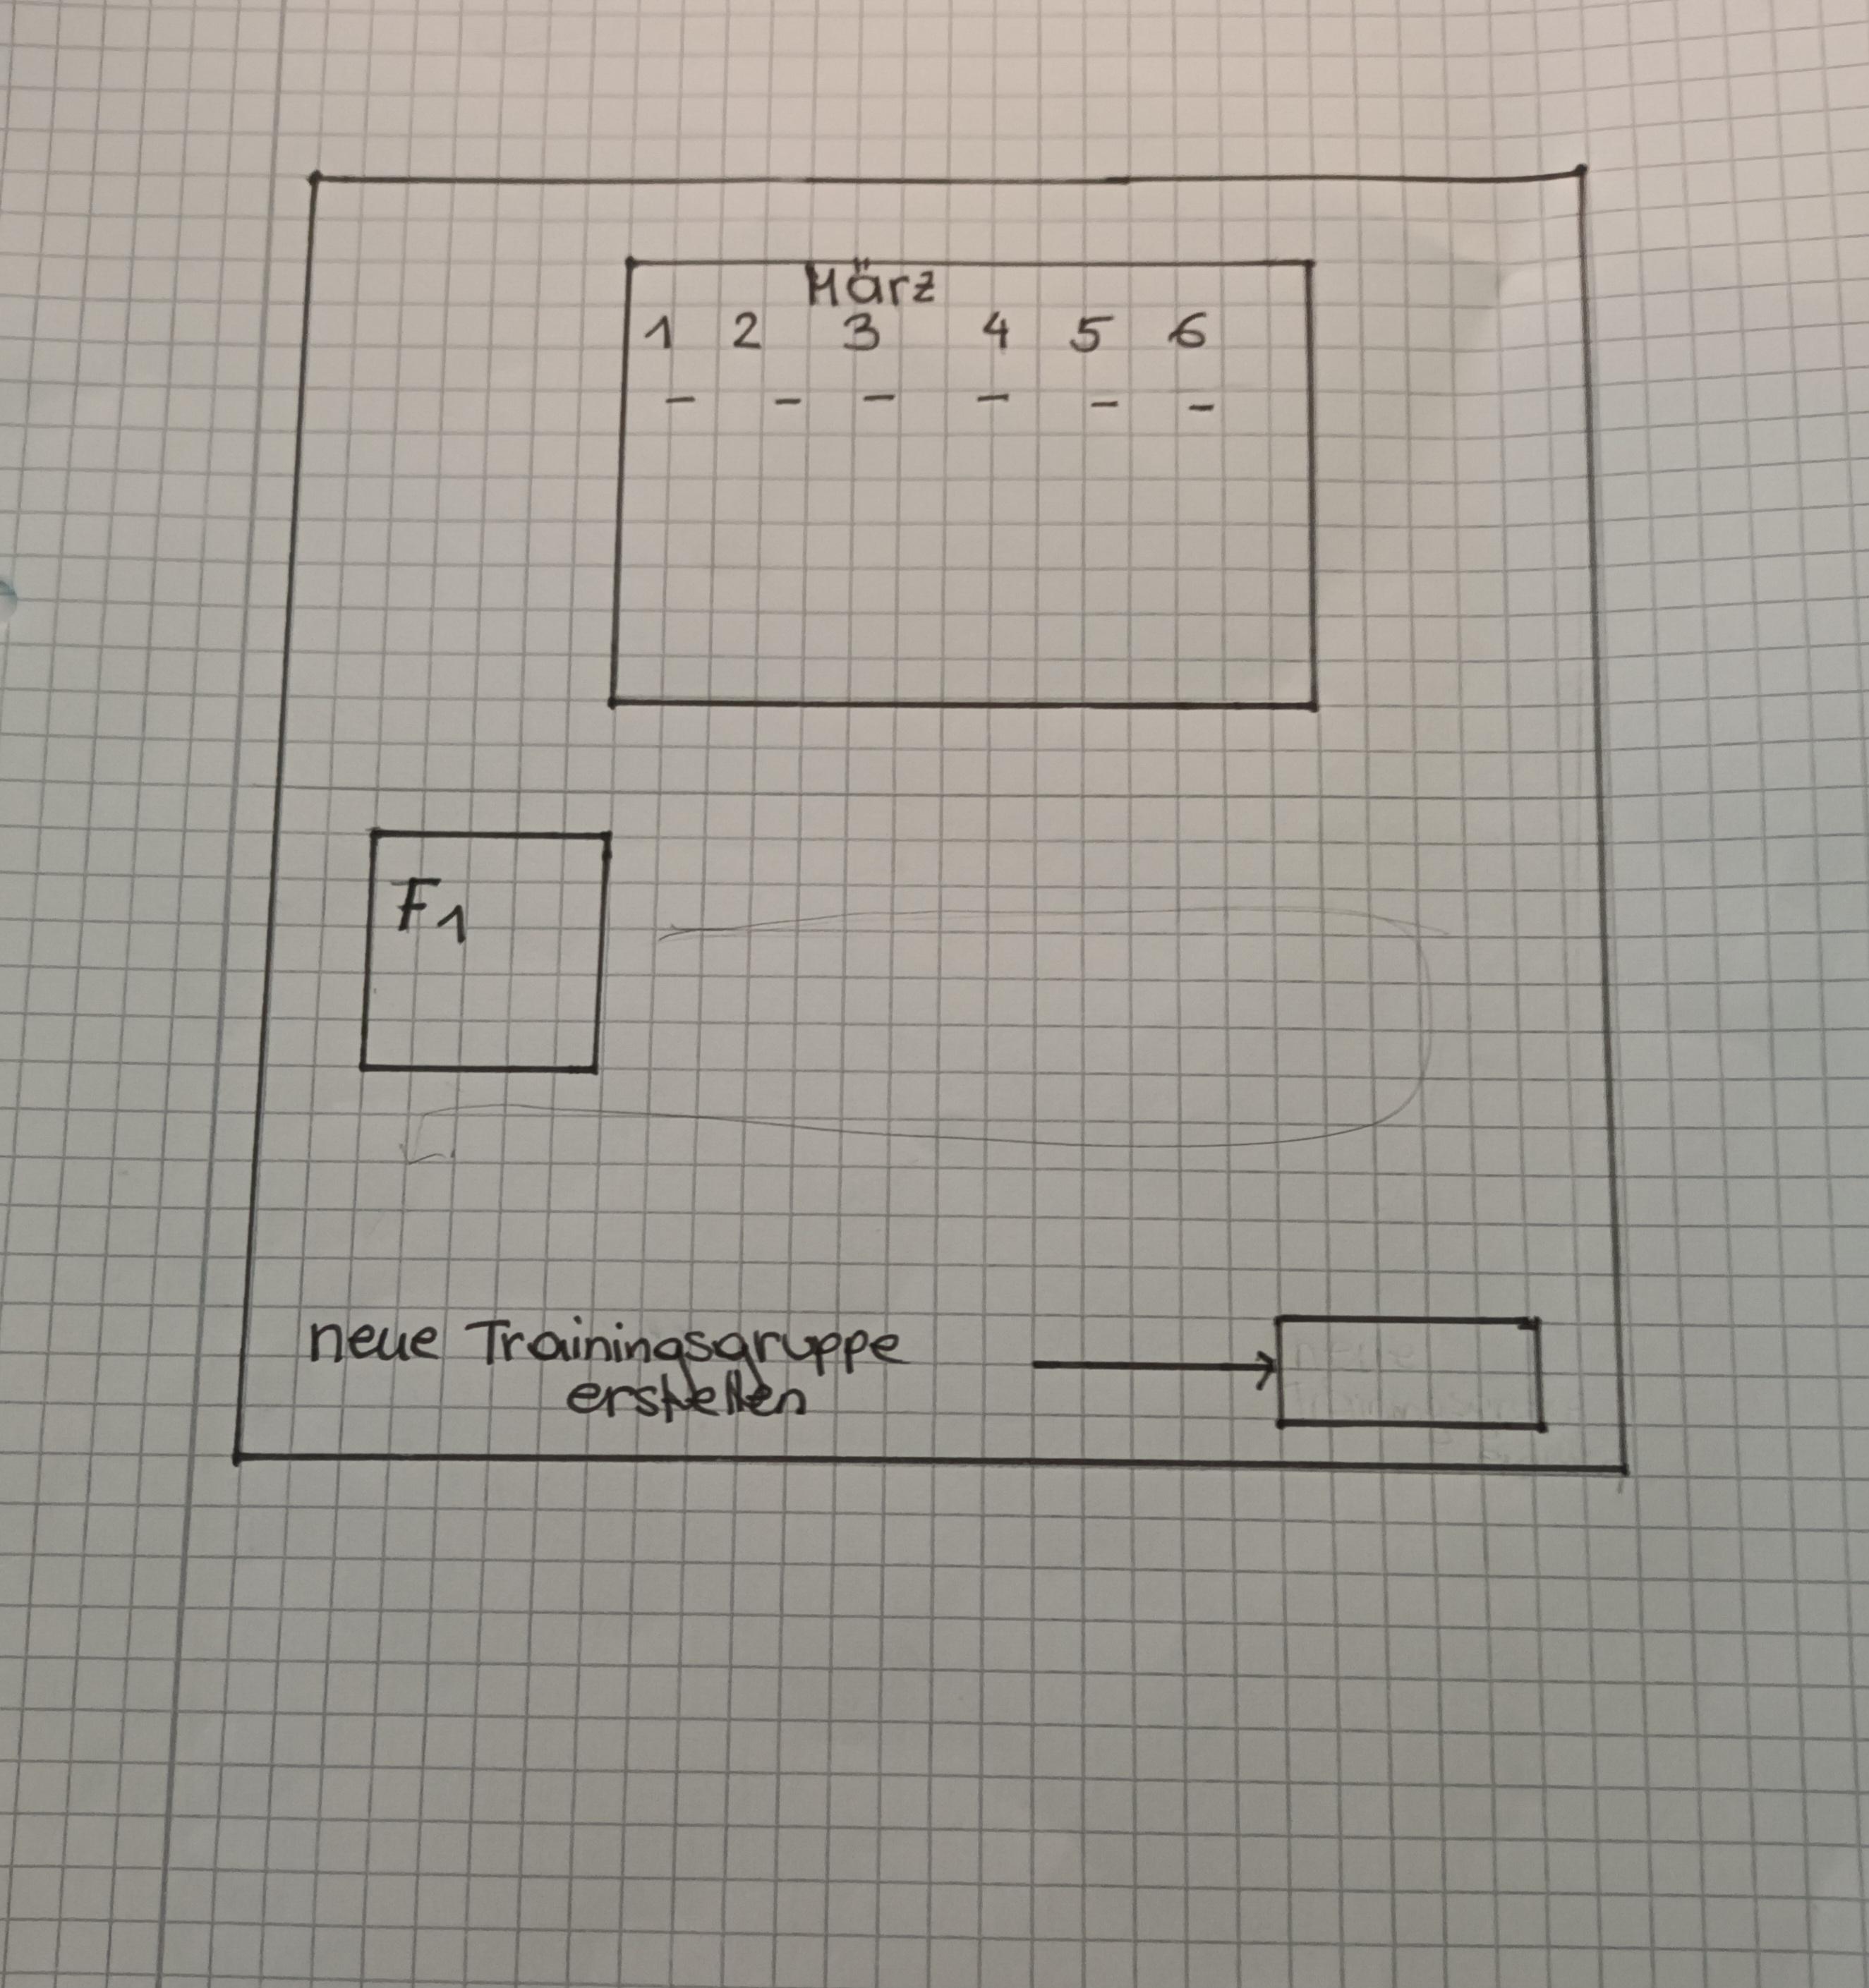 März
1 2 3 4 5 6
- - - - - -
F1
neue Trainingsgruppe
erstellen